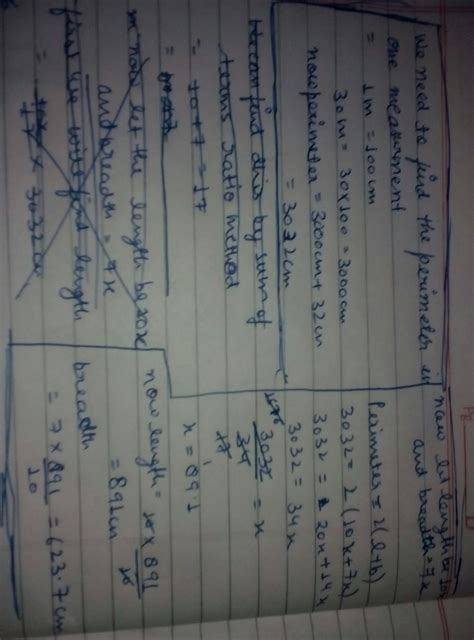 We need to find the perimeter in
one measurment
= 1m = 100cm
30m = 30x100 = 3000cm
now perimeter = 3000cm + 32cm
= 3032cm
we can find this by sum of
terms ratio method
= 10 + 7 = 17
=
now let the length be 10x
and breadth = 7x
first we will find length
= 10x x 3032cm
17
now let length be 10x
and breadth = 7x
Perimeter = 2(l+b)
3032 = 2(10x+7x)
3032 = 20x + 14x
3032 = 34x
3032 = x
34
17
x = 89.1
now length = 10 x 891
10
= 891cm
breadth
= 7 x 891 = 623.7cm
10